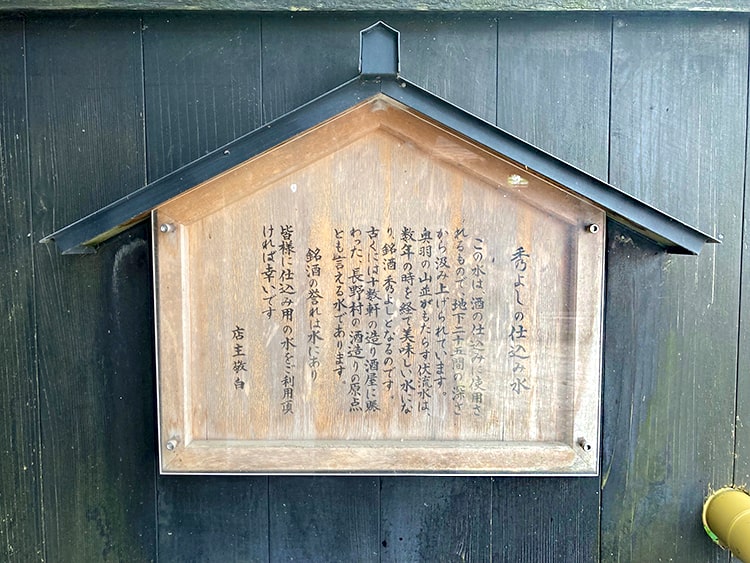 秀よしの仕込み水
この水は、酒の仕込みに使用さ
れるもので、地下二十五間の深さ
から汲み上げられています。
奥羽の山並がもたらす伏流水は、
数年の時を経て美味しい水にな
り、銘酒秀よしとなるのです。
古くには十数軒の造り酒屋に賑
わった、長野村の酒造りの原点
とも言える水であります。
銘酒の誉れは水にあり
皆様に仕込み用の水をご利用頂
ければ幸いです
店主敬白